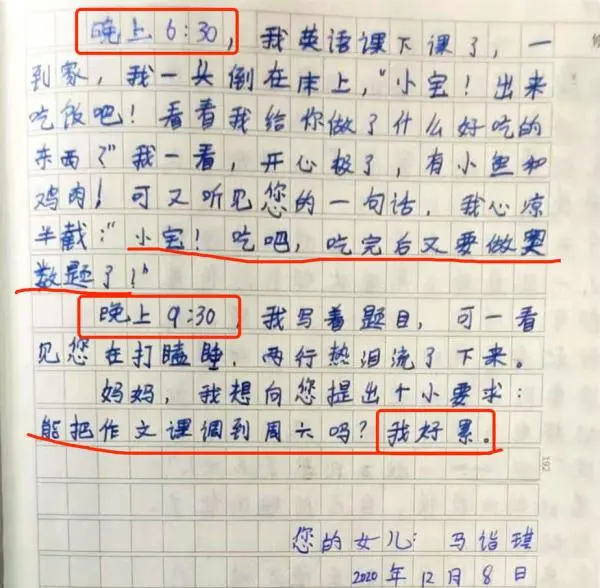 晚上6:30,我英语课下课了,一
到家,我一头倒在床上,"小宝!出来
吃饭吧!看看我给你做了什么好吃的
东西?"我一看,开心极了,有小鱼和
鸡肉!可又听见您的一句话,我心凉
半截:"小宝!吃吧,吃完后又要做奥
数题了!"
晚上9:30,我写着题目,可一看
见您在打瞌睡,两行热泪流了下来。
妈妈,我想向您提出个小要求:
能把作文课调到周六吗?我好累。
192
您的女儿:马诣琪
2020年12月8日